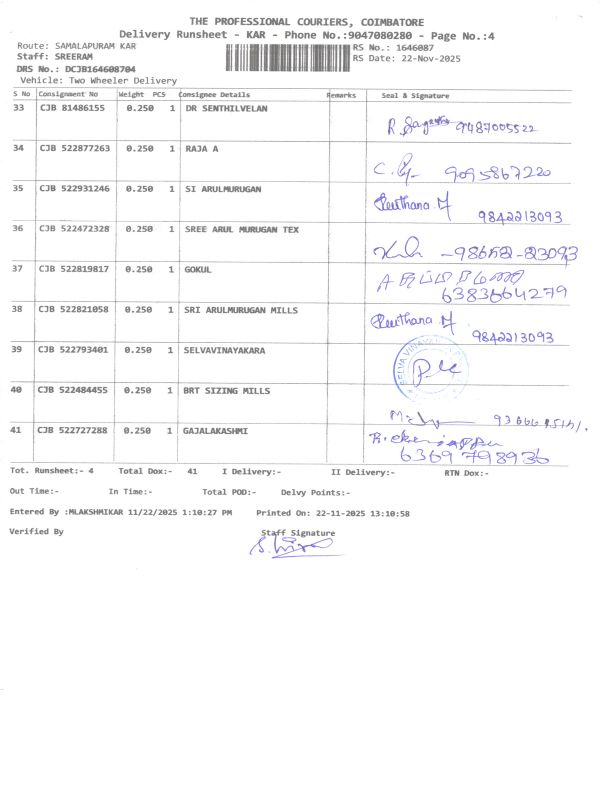 THE PROFESSIONAL COURIERS, COIMBATORE
Delivery Runsheet - KAR - Phone No.:9047080280 - Page No.:4
Route: SAMALAPURAM KAR RS No.: 1646087
Staff: SREERAM RS Date: 22-Nov-2025
DRS No.: DCJB164608704
Vehicle: Two Wheeler Delivery
S No Consignment No Weight PCS Consignee Details Remarks Seal & Signature
33 CJB 81486155 0.250 1 DR SENTHILVELAN
9487005522
34 CJB 522877263 0.250 1 RAJA A
9095867220
35 CJB 522931246 0.250 1 SI ARULMURUGAN
9842213093
36 CJB 522472328 0.250 1 SREE ARUL MURUGAN TEX
37 CJB 522819817 0.250 1 GOKUL
6383664279
38 CJB 522821058 0.250 1 SRI ARULMURUGAN MILLS
9842213093
39 CJB 522793401 0.250 1 SELVAVINAYAKARA
40 CJB 522484455 0.250 1 BRT SIZING MILLS
41 CJB 522727288 0.250 1 GAJALAKASHMI
6369798936
Tot. Runsheet:- 4 Total Dox:- 41 I Delivery:- II Delivery:- RTN Dox:-
Out Time:- In Time:- Total POD:- Delvy Points:-
Entered By :MLAKSHMIKAR 11/22/2025 1:10:27 PM Printed On: 22-11-2025 13:10:58
Verified By Staff Signature